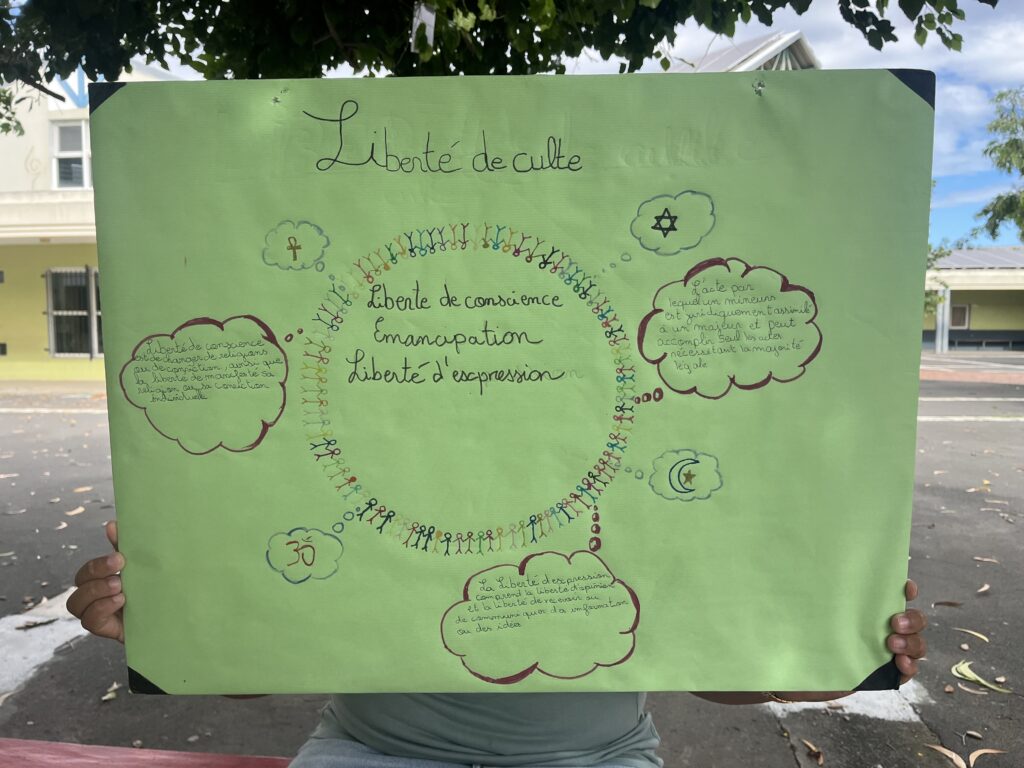 Liberté de culte
Liberte de conscience
Emancipation
Liberté d'expression
Liberté de conscience
est de changer de religions
ou de conviction, ainsi que
la liberté de manifesté sa
religion ou sa conviction
individuelle
L'acte par
lequel un mineurs
est juridiquement assimilé
à un majeur et peut
accomplir seul les actes
nécessitant la majorité
légale
La liberté d'expression
comprend la liberté d'opinion
et la liberté de recevoir ou
de communiquer des information
ou des idée